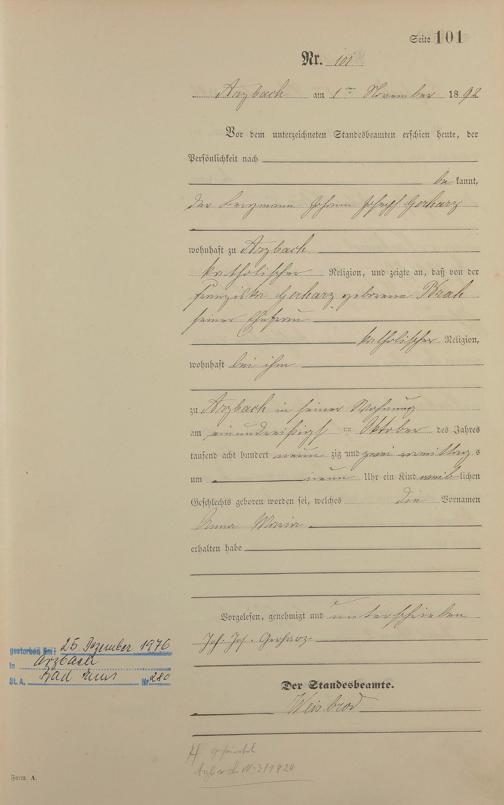 Seite 101
Nr. 101
Arzbach am 1ten November 1892
Vor dem unterzeichneten Standesbeamten erschien heute, der
Persönlichkeit nach
be kannt,
der Bergmann Johann Joseph Gerharz
wohnhaft zu Arzbach
katholischer Religion, und zeigte an, daß von der
Franziska Gerharz geborene
seiner Ehefrau
katholischer Religion,
wohnhaft bei ihm
zu Arzbach in seiner Wohnung
am einunddreißigsten Oktober des Jahres
tausend acht hundert neun zig und zwei mittags
um neun Uhr ein Kind weiblichen
Geschlechts geboren worden sei, welches die Vornamen
Anna Maria
erhalten habe
Vorgelesen, genehmigt und unterschrieben
Joh. Jos. Gerharz
Der Standesbeamte.
Weisbrod
gestorben am: 25 Dezember 1970
in Arzbach
St. A. Bad Ems Nr. 280
Form A.